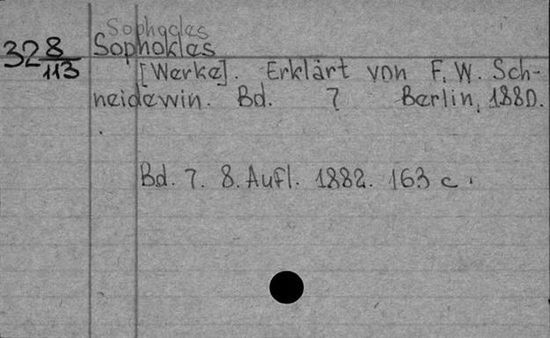 Sophocles
328/113 Sophokles
[Werke]. Erklärt von F. W. Sch-
neidewin. Bd. 7 Berlin, 1880.
Bd. 7. 8. Aufl. 1882. 163 c.